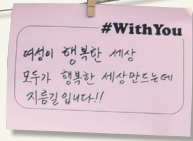 #WithYou
여성이 행복한 세상
모두가 행복한 세상만드는데
지름길입니다!!